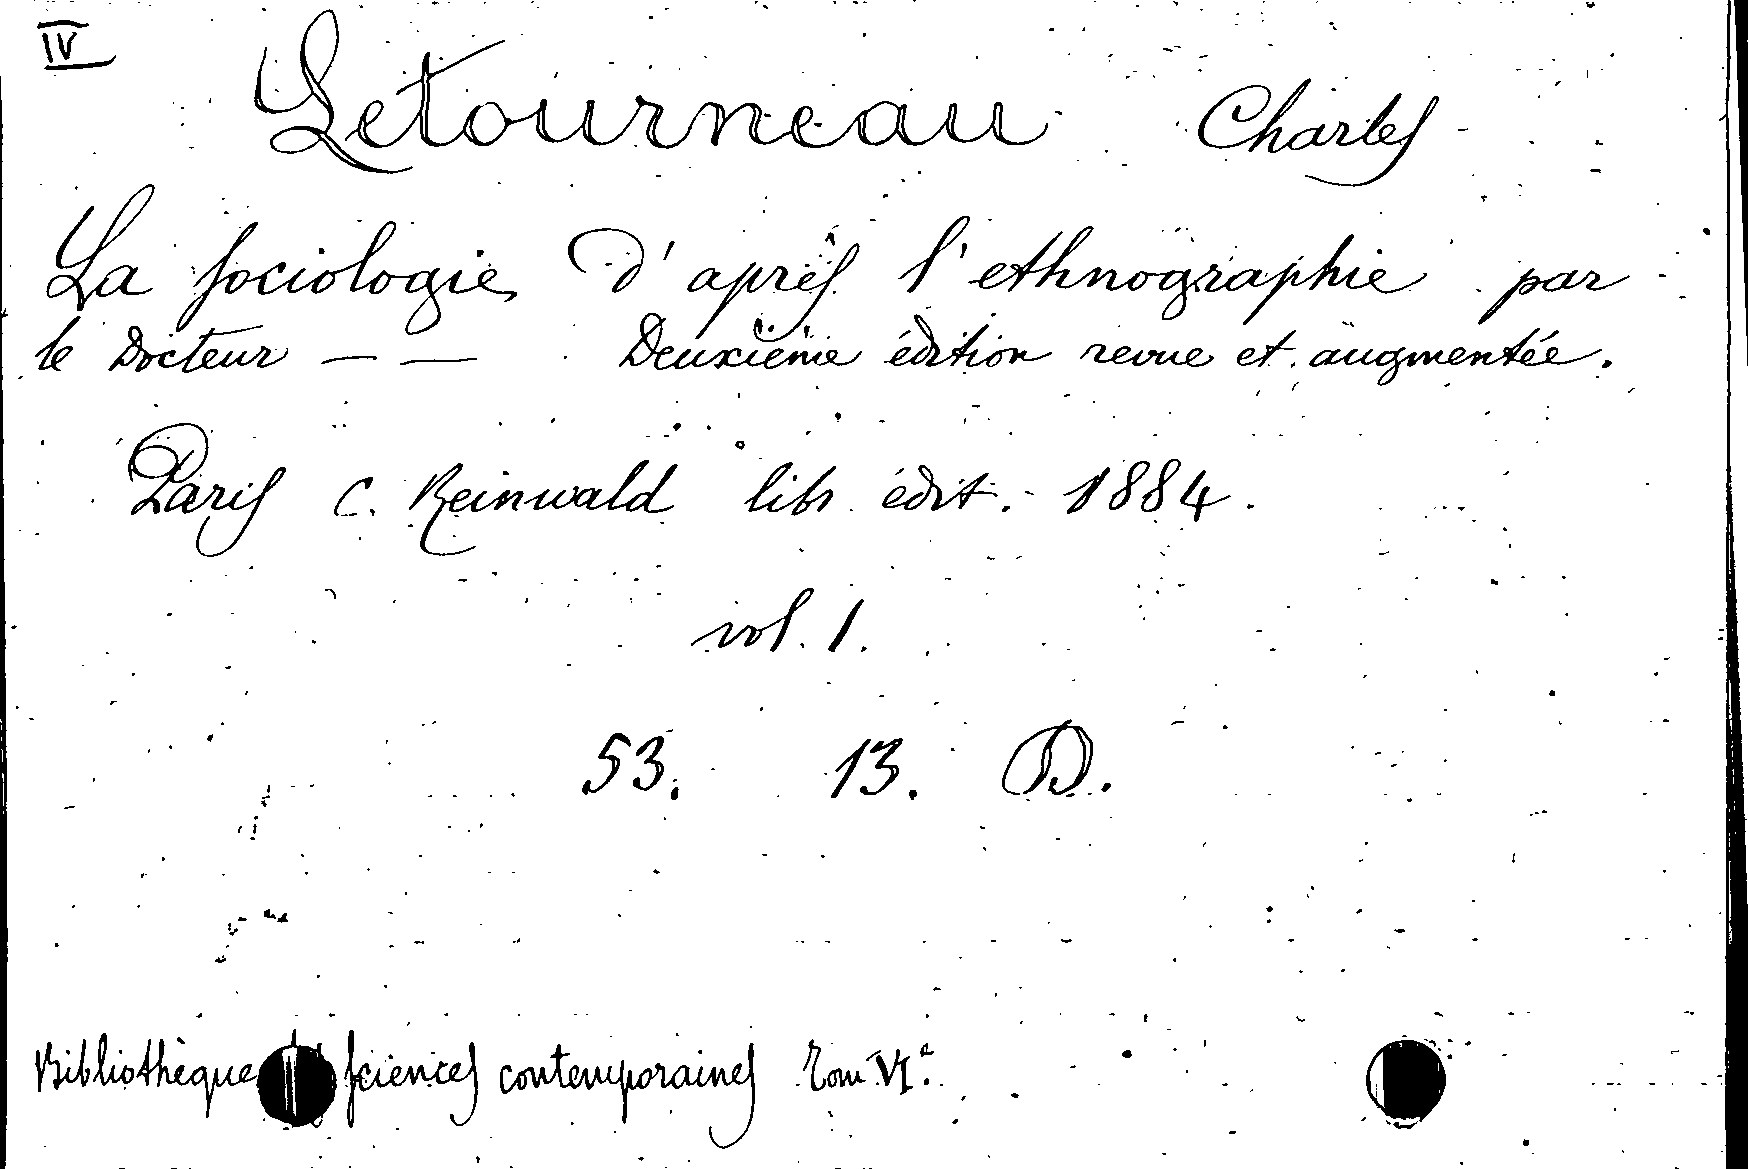 IV
Letourneau Charles
La sociologie d'après l'ethnographie par
le Docteur — — Deuxième édition revue et augmentée.
Paris C. Reinwald lib édit. 1884.
vol. 1.
53. 13. D.
Bibliothèque sciences contemporaines Tom VI.e